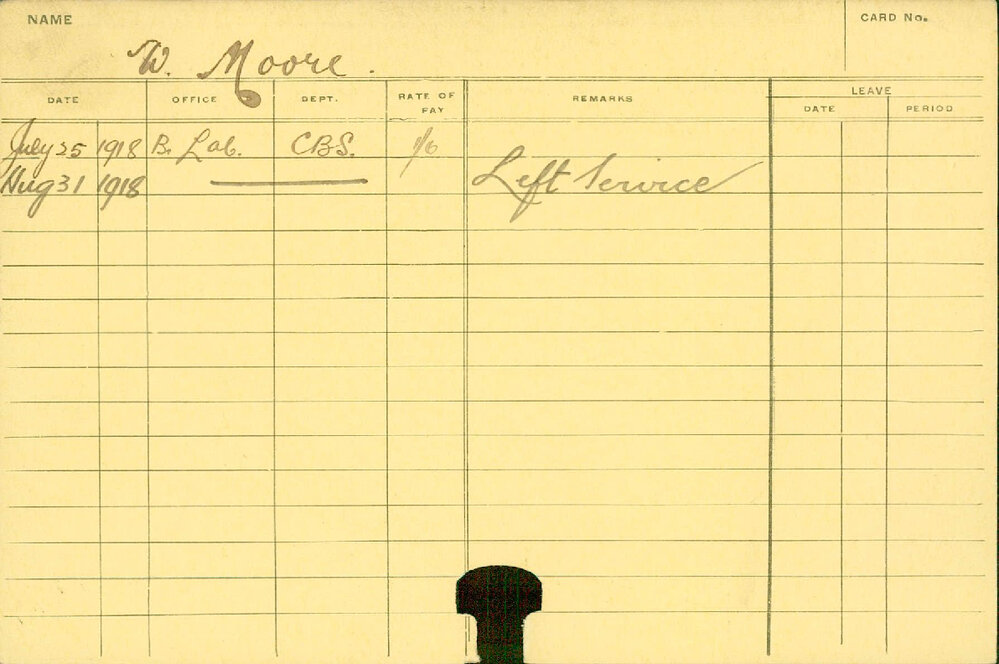 NAME
CARD No.
W. Moore.
DATE OFFICE DEPT. RATE OF PAY REMARKS LEAVE
DATE PERIOD
July 25 1918 B. Lab. CBS. 1/6
Aug 31 1918 Left Service